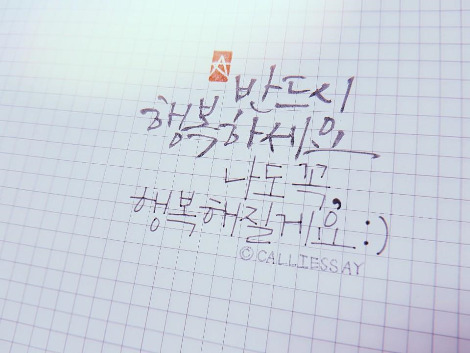 반드시
행복하세요
나도 꼭,
행복해질게요 :)
© CALLIESSAY